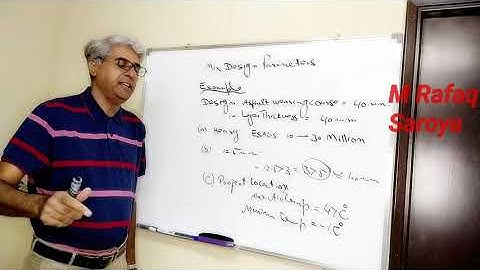 Mix Design Parameters
Example
Design Asphalt wearing course = 40 mm
= Layer Thickness = 40 mm
(a) Heavy ESALS 10 → 30 Million
(b) 12.5 mm
= 12.5 × 3 = 37.5 40mm
(C) Project location
Max. Air Temp = 47°C
Minimum Temp = -1°C
M Rafaq
Saroya